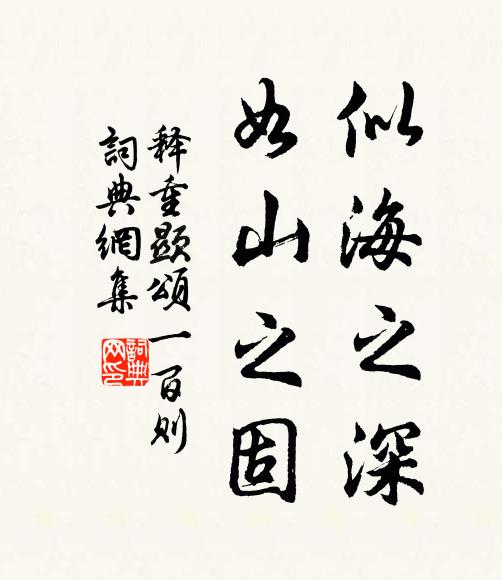 似海之深
如山之固
释重显颂一百则
詞典網集
詞典網印